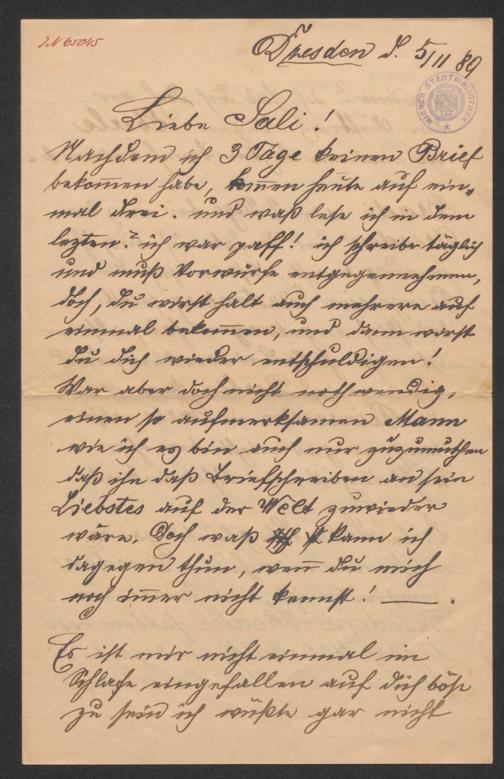 J.N 65045
Dresden d. 5/11 89
WIENER STADTBIBLIOTHEK
Liebe Sali!
Nachdem ich 3 Tage keinen Brief
bekommen habe, komen heute auf ein„
mal drei. und waß lese ich in dem
lezten? ich war paff! ich schreibe täglich
und muß Vorwürfe entgegennehmen,
doch, du wirst halt auch mehrere auf
einmal bekommen, und dann wirst
du dich wieder entschuldigen!
War aber doch nicht nothwendig,
einen so aufmerksamen Mann
wie ich es bin auch nur zuzumuthen
daß ihm daß Briefschreiben an sein
Liebstes auf der Welt zuwieder
wäre. Doch waß kann ich
dagegen thun, wenn du mich
noch immer nicht kennst! —.
Es ist mir nicht einmal im
Schlafe eingefallen auf dich böse
zu sein ich wüßte gar nicht